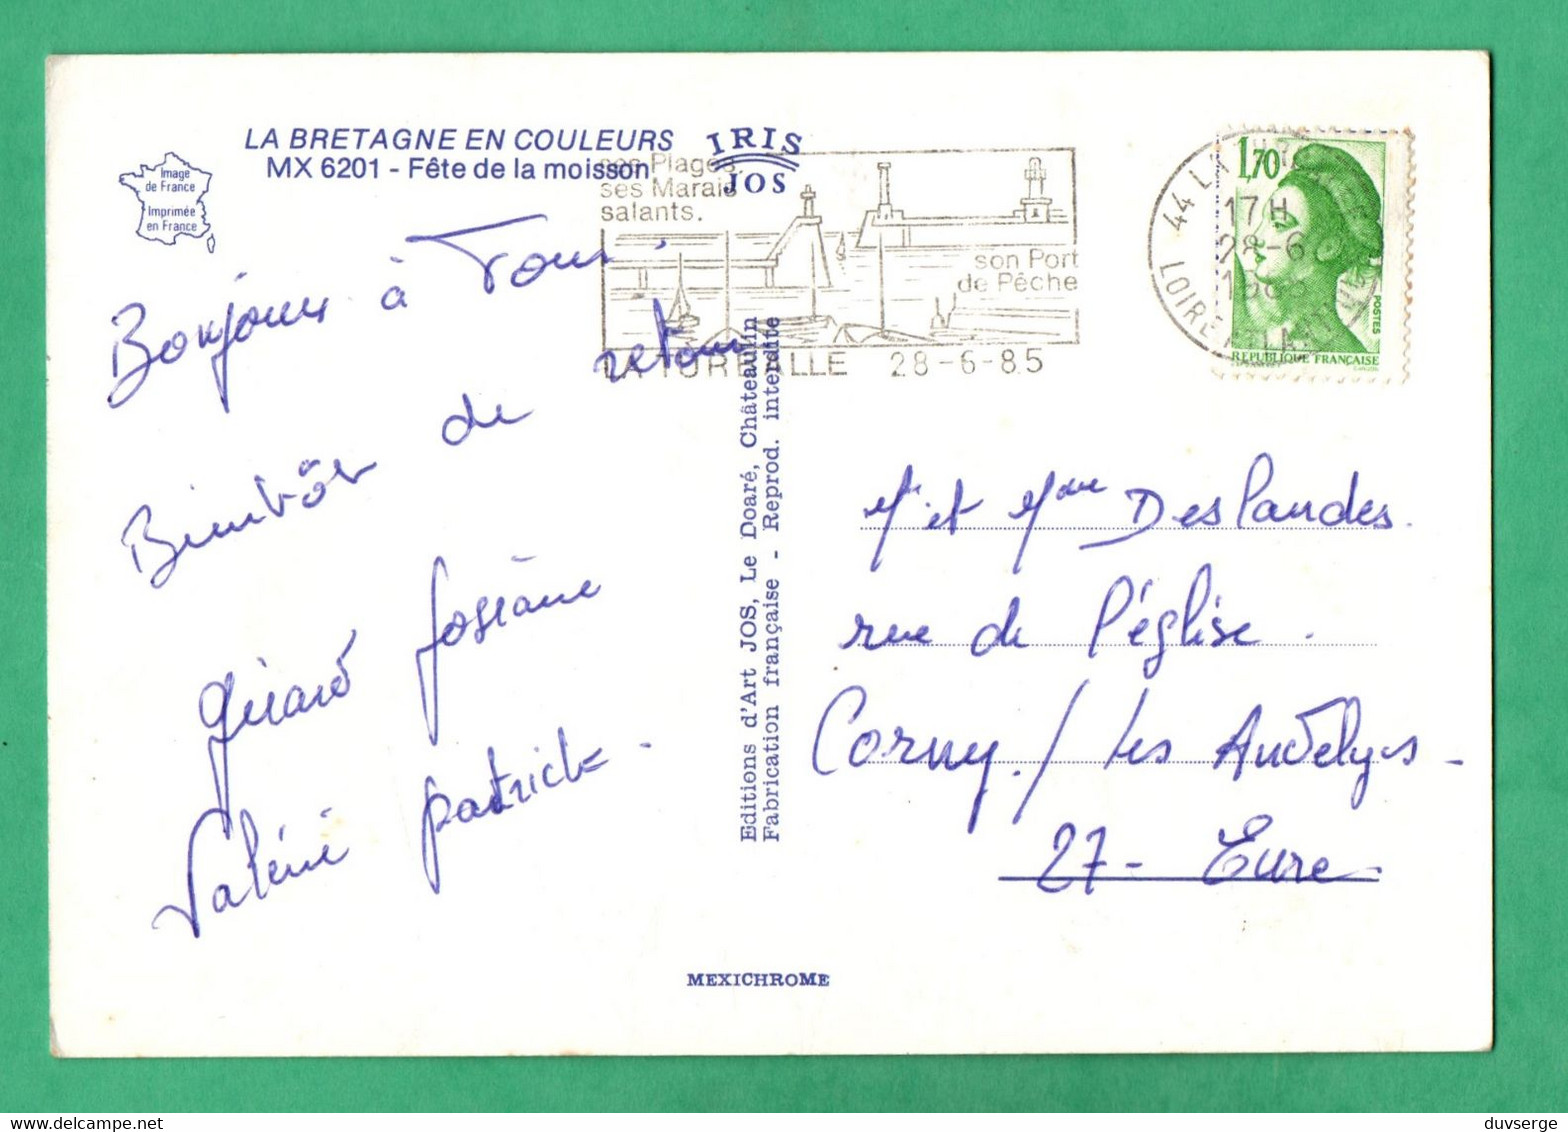 LA BRETAGNE EN COULEURS
MX 6201 - Fête de la moisson
Image
de France
Imprimée
en France
IRIS
JOS
ses Plages
ses Marais
salants.
son Port
de Pêche
LA TURBALLE 28-6-85
44 LA
17 H
28-6
LOIRE ATLANTIQUE
1,70
POSTES
REPUBLIQUE FRANÇAISE
Bonjour à Tous
Bientôt de retour
Gérard Josiane
Valérie patrick
Editions d'Art JOS, Le Doaré, Châteaulin
Fabrication française - Reprod. interdite
Mr et Mme Deslandes.
rue de l'église.
Corny / les Andelys -
27 - Eure
MEXICHROME
duvserge